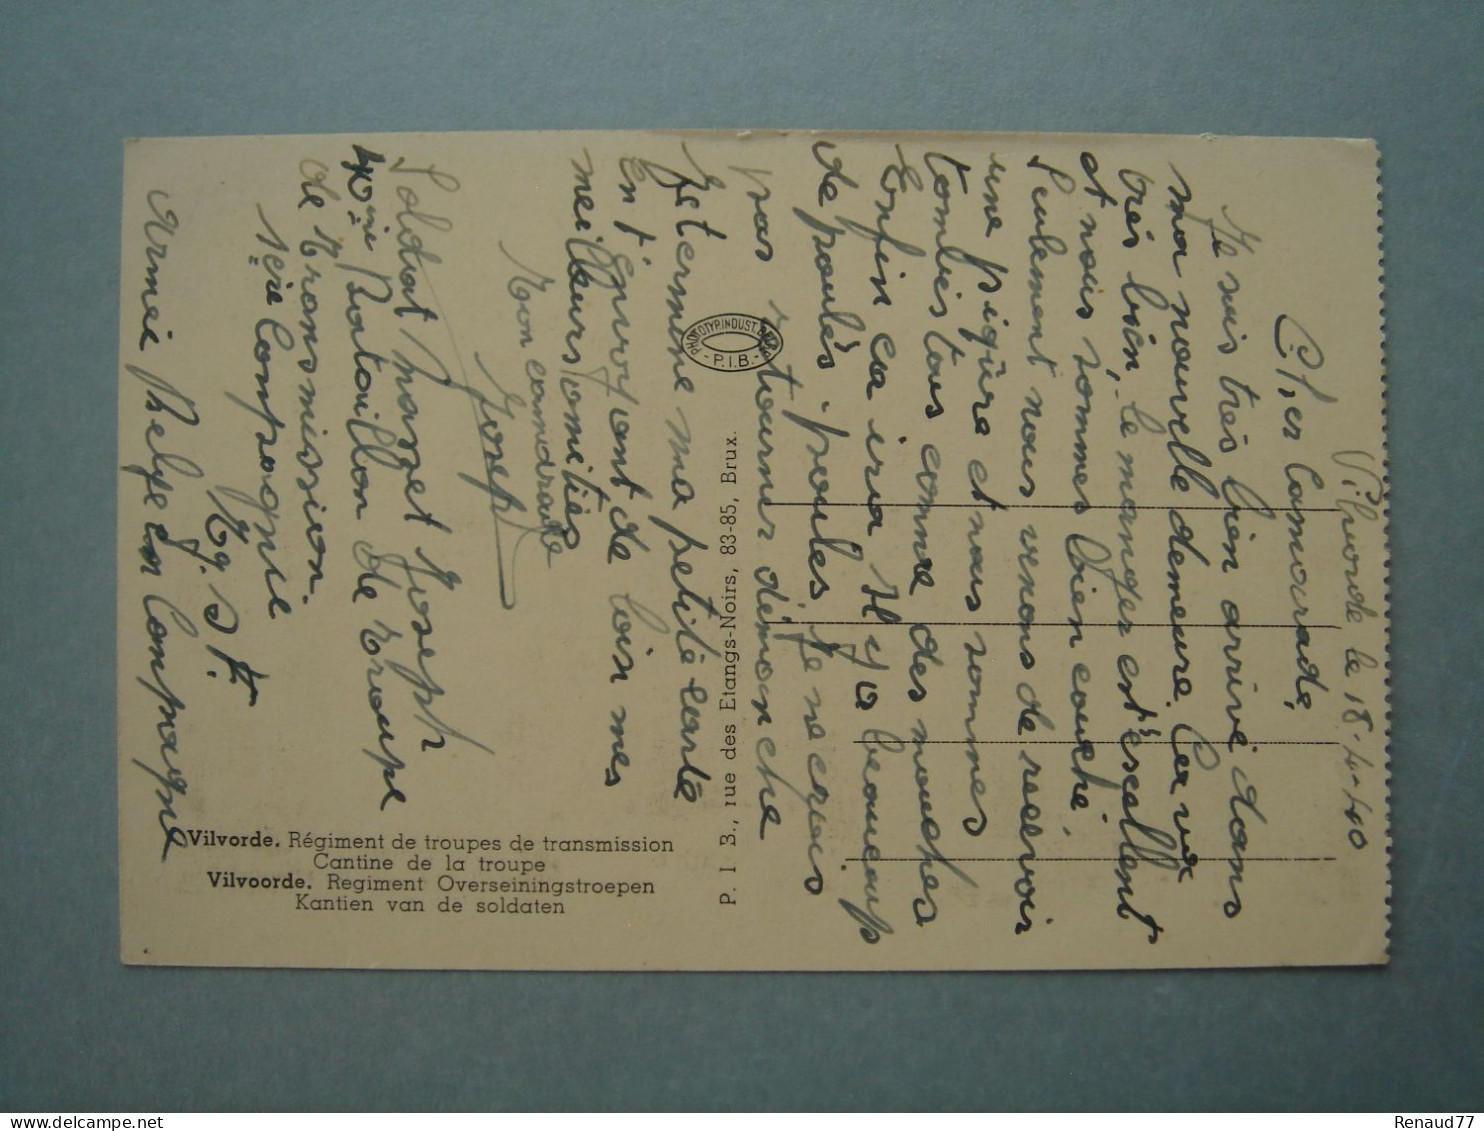 Vilvorde le 18-4-40
Cher Camarade,
Je suis très bien arrivé dans
ma nouvelle demeure. Ca va
très bien, le manger est éscellent
et nous sommes bien couché.
Seulement nous venons de reservoir
une piqûre et nous sommes
tombés tous comme des mouches
Enfin ca ira Il y a beaucoup
de poulès poules, Je ne crois
pas retourner démanche
Je termine ma petite carte
En t'envoyant de loin mes
meilleurs amitiés
Ton camarade
Joseph
Soldat Joseph
40ème Bataillon de troupe
de transmission.
1ère Compagnie
Armée Belge en Compagne
P. I B., rue des Etangs-Noirs, 83-85, Brux.
PHOTOTYP.INDUST.BELGE
- P.I.B. -
Vilvorde. Régiment de troupes de transmission
Cantine de la troupe
Vilvoorde. Regiment Overseiningstroepen
Kantien van de soldaten
delcampe.net
Renaud77